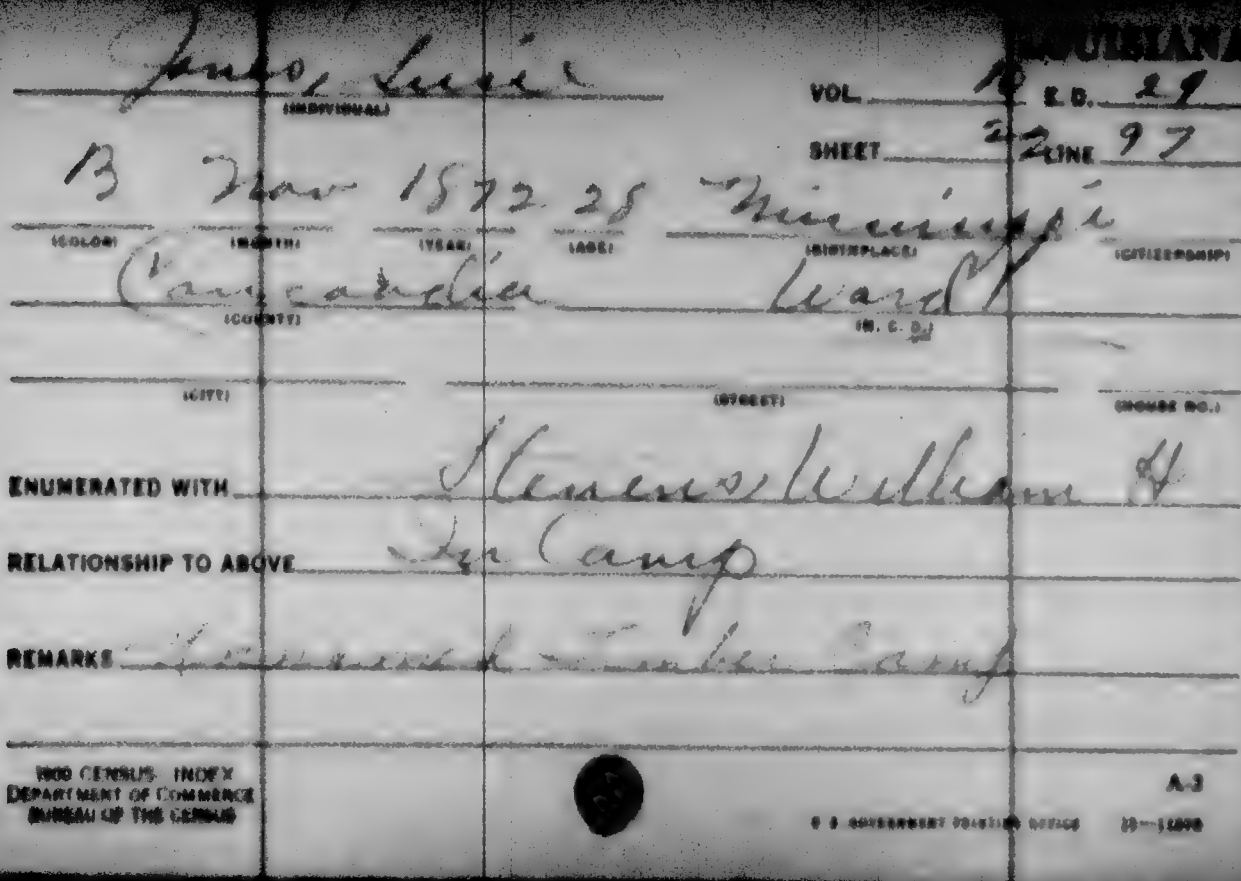 LOUISIANA
Jones, Susie
(INDIVIDUAL)
VOL. 10 E.D. 29
SHEET 22 LINE 97
B Nov 1872 28 Mississippi
(COLOR) (MONTH) (YEAR) (AGE) (BIRTHPLACE) (CITIZENSHIP)
Concordia Ward
(COUNTY) (M. C. D.)
(CITY) (STREET) (HOUSE NO.)
ENUMERATED WITH Stevens, William H
RELATIONSHIP TO ABOVE In Camp
REMARKS Timber Camp
1900 CENSUS INDEX
DEPARTMENT OF COMMERCE
BUREAU OF THE CENSUS
A-2
U S GOVERNMENT PRINTING OFFICE